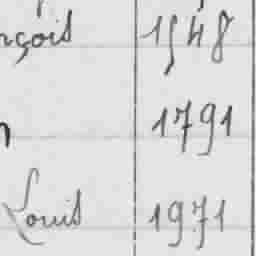 nçois 1548
n 1791
Louis 1971